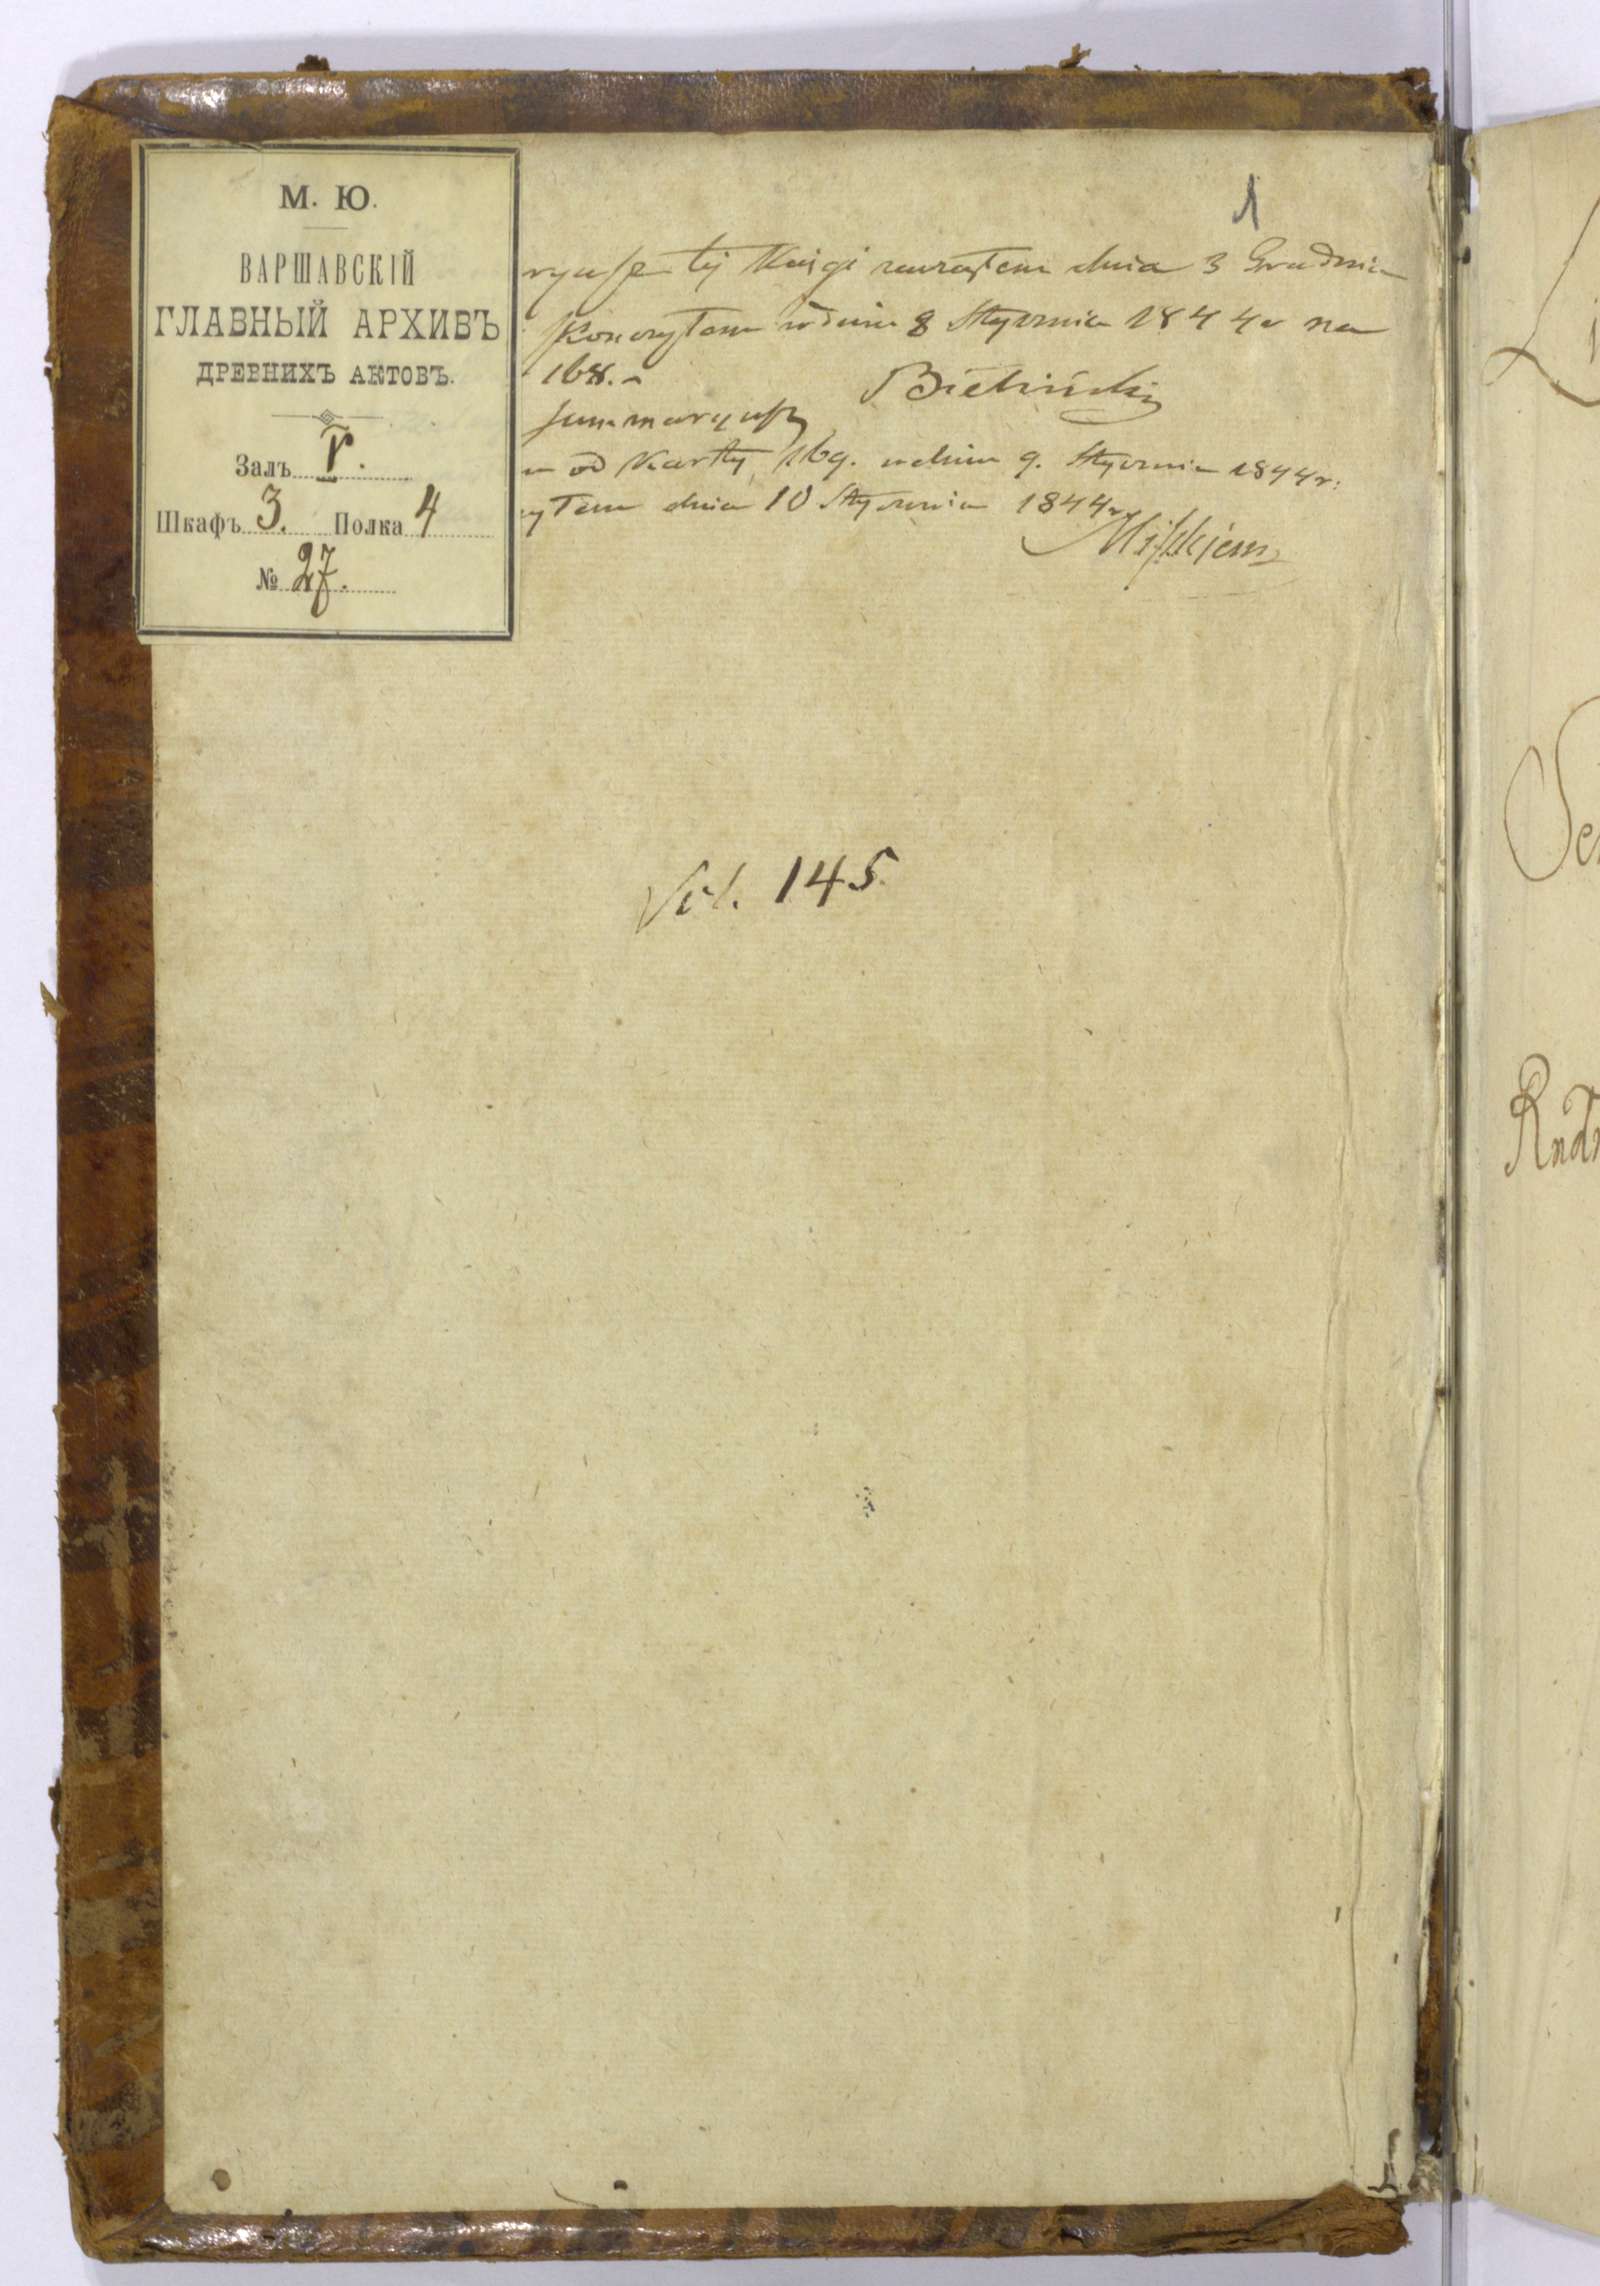 1
М. Ю.
ВАРШАВСКІЙ
ГЛАВНЫЙ АРХИВЪ
ДРЕВНИХЪ АКТОВЪ.
Залъ I.
Шкафъ 3. Полка 4
№ 27.
tej Księgi zacząłem dnia 3 Grudnia
skonczyłem w dniu 8 Stycznia 1844 r na
168.
Bieliński
summaryusz
od Karty 169. w dniu 9. Stycznia 1844 r.
dnia 10 Stycznia 1844 r
Vol. 145.